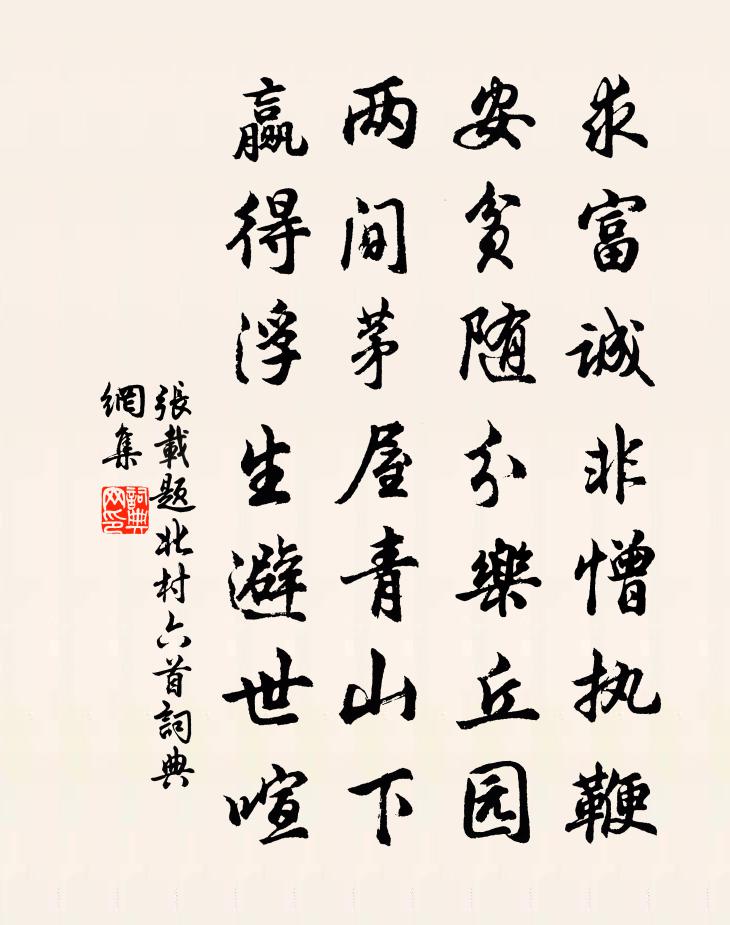 求富诚非憎执鞭
安贫随分樂丘园
两间茅屋青山下
赢得浮生避世喧
張載题北村六首詞典
網集
詞典
网印